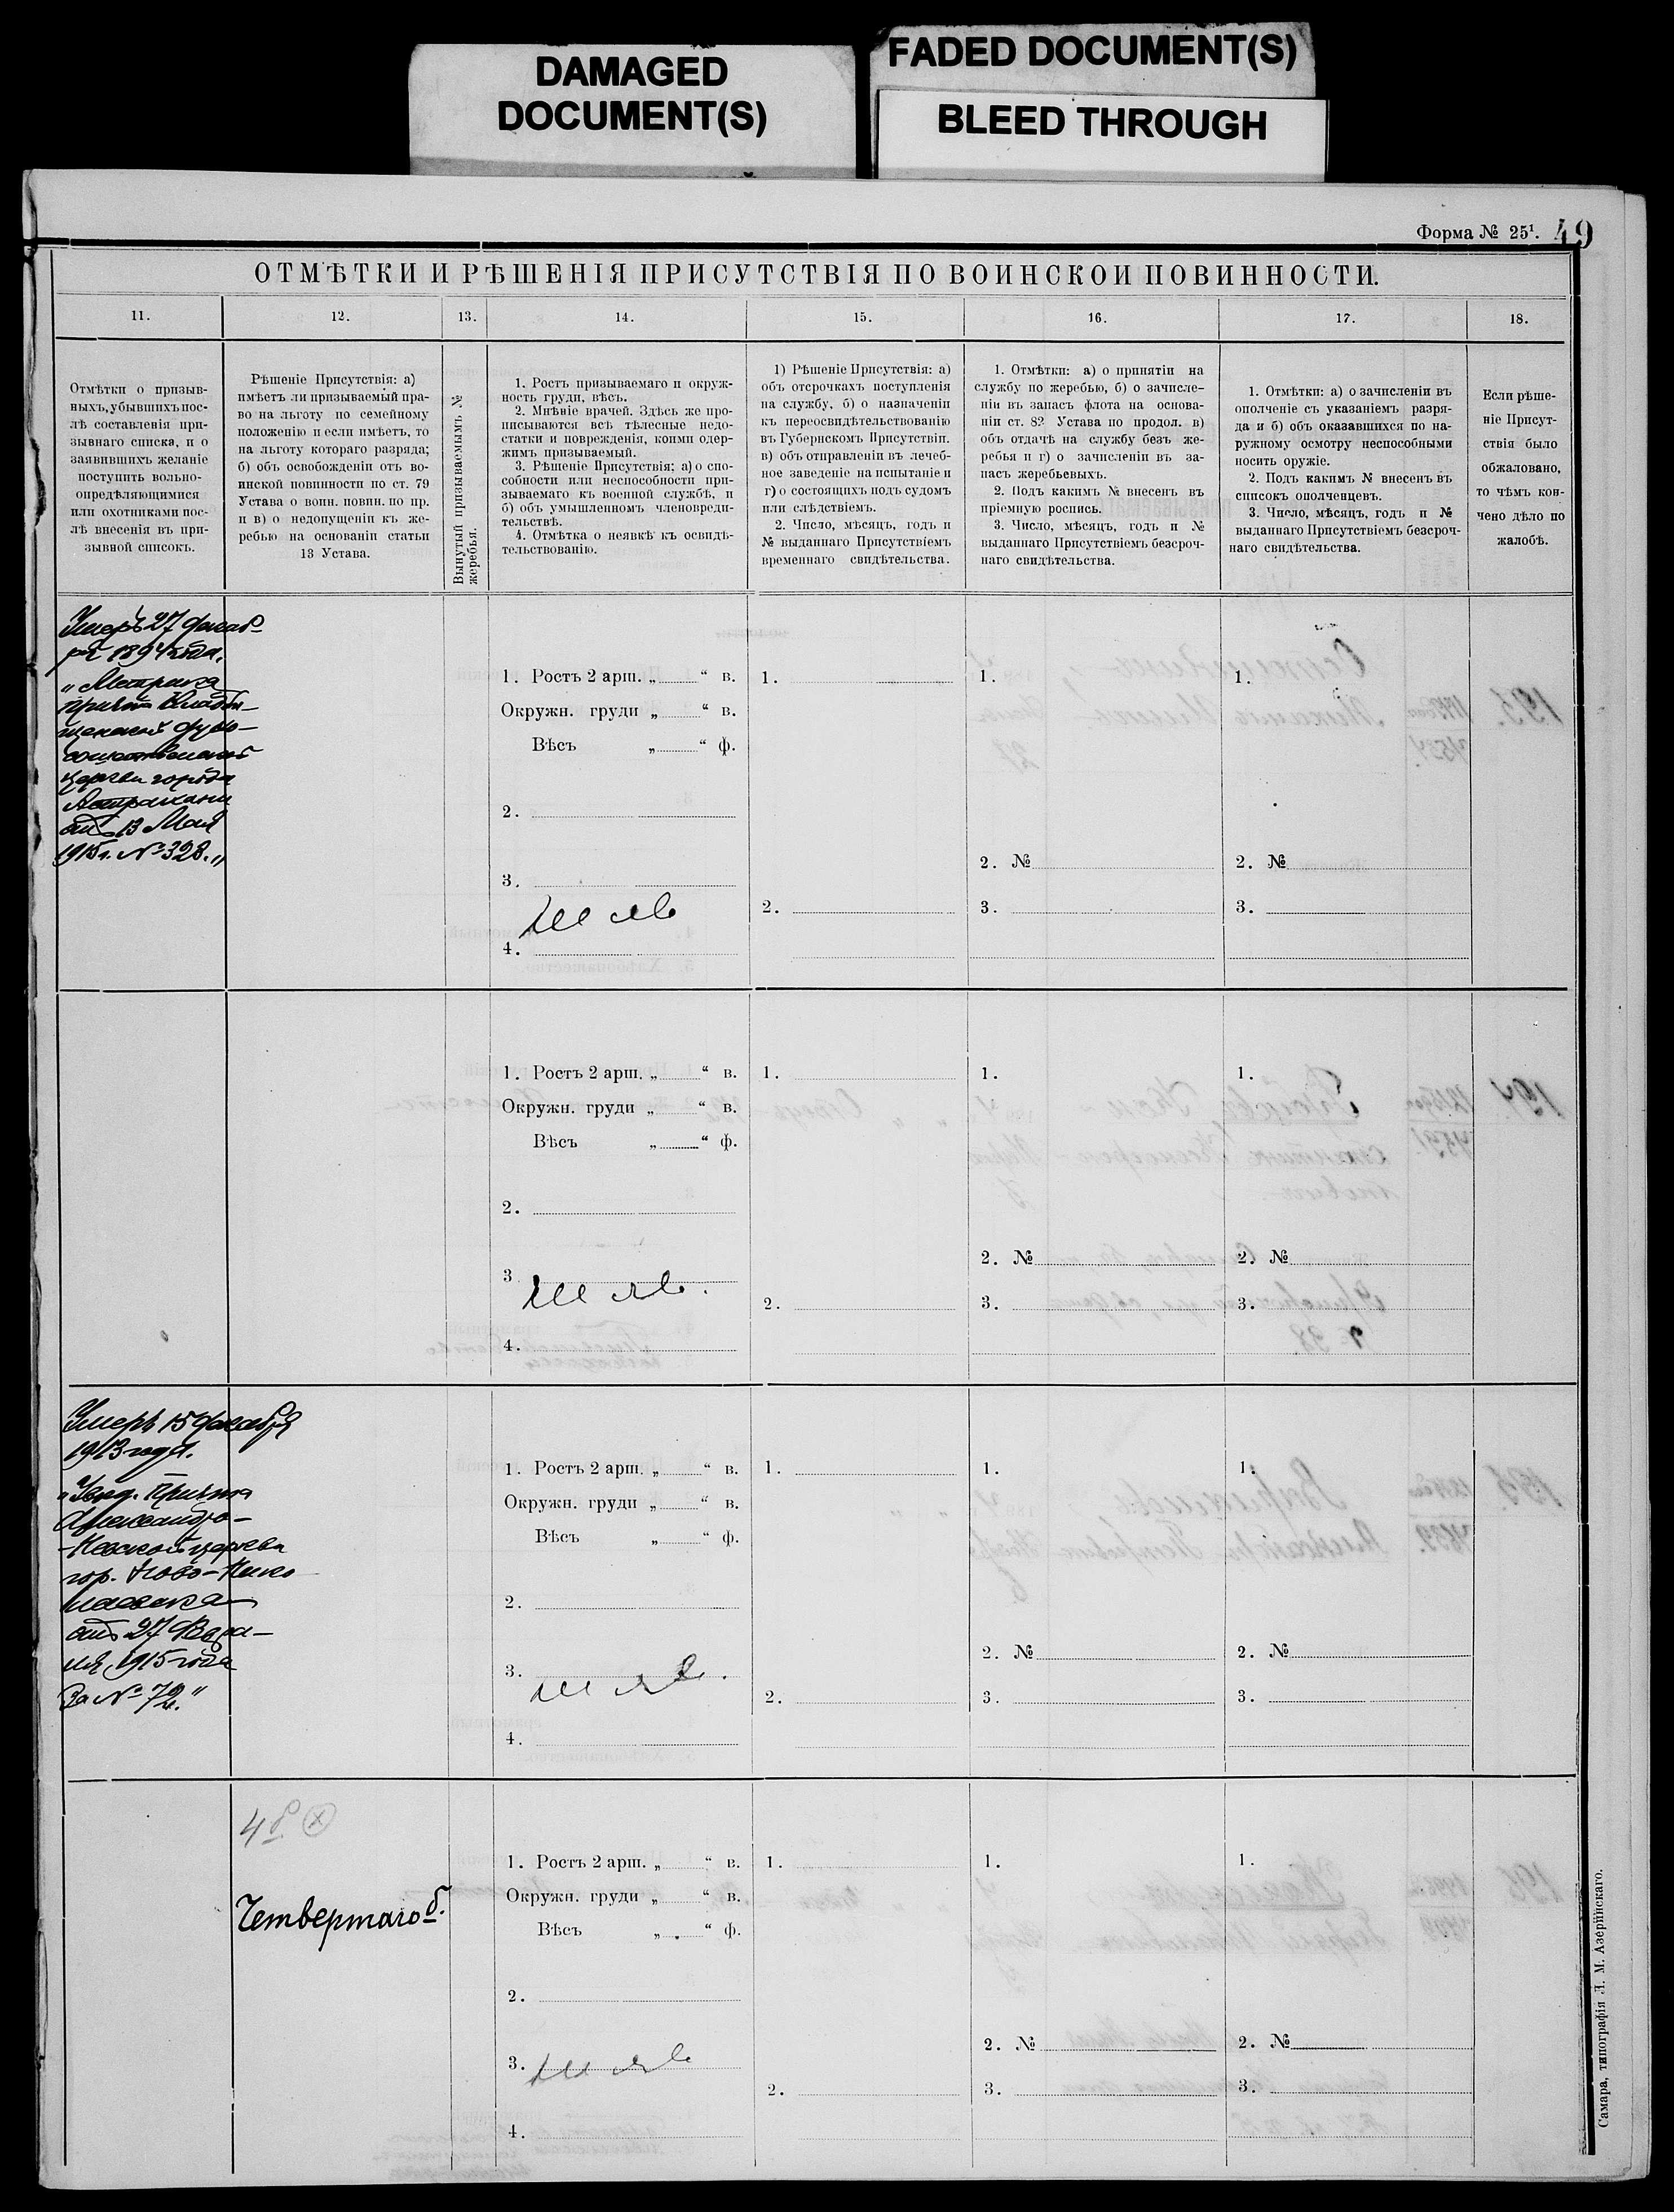 DAMAGED
DOCUMENT(S)
FADED DOCUMENT(S)
BLEED THROUGH
Форма № 25¹. 49
ОТМѢТКИ И РѢШЕНІЯ ПРИСУТСТВІЯ ПО ВОИНСКОЙ ПОВИННОСТИ.
11. 12. 13. 14. 15. 16. 17. 18.
Отмѣтки о призыв-
ныхъ, убывшихъ пос-
лѣ составленія при-
зывнаго списка, и о
заявившихъ желаніе
поступить вольно-
опредѣляющимися
или охотниками пос-
лѣ внесенія въ при-
зывной списокъ.
Рѣшеніе Присутствія: а)
имѣетъ ли призываемый пра-
во на льготу по семейному
положенію и если имѣетъ, то
на льготу котораго разряда;
б) объ освобожденіи отъ во-
инской повинности по ст. 79
Устава о воин. повин. по пр.
и в) о недопущеніи къ же-
ребью на основаніи статьи
13 Устава.
Вынутый призываемымъ №
жеребья.
1. Ростъ призываемаго и окруж-
ность груди, вѣсъ.
2. Мнѣніе врачей. Здѣсь же про-
писываются всѣ тѣлесные недо-
статки и поврежденія, коими одер-
жимъ призываемый.
3. Рѣшеніе Присутствія: а) о спо-
собности или неспособности при-
зываемаго къ военной службѣ, и
б) объ умышленномъ членовреди-
тельствѣ.
4. Отмѣтка о неявкѣ къ освидѣ-
тельствованію.
1) Рѣшеніе Присутствія: а)
объ отсрочкахъ поступленія
на службу, б) о назначеніи
къ переосвидѣтельствованію
въ Губернскомъ Присутствіи.
в) объ отправленіи въ лечеб-
ное заведеніе на испытаніе и
г) о состоящихъ подъ судомъ
или слѣдствіемъ.
2. Число, мѣсяцъ, годъ и
№ выданнаго Присутствіемъ
временнаго свидѣтельства.
1. Отмѣтки: а) о принятіи на
службу по жеребью, б) о зачисле-
ніи въ запасъ флота на основа-
ніи ст. 82 Устава по продол. в)
объ отдачѣ на службу безъ же-
ребья и г) о зачисленіи въ за-
пасъ жеребьевыхъ.
2. Подъ какимъ № внесенъ въ
пріемную роспись.
3. Число, мѣсяцъ, годъ и №
выданнаго Присутствіемъ безсроч-
наго свидѣтельства.
1. Отмѣтки: а) о зачисленіи въ
ополченіе съ указаніемъ разря-
да и б) объ оказавшихся по на-
ружному осмотру неспособными
носить оружіе.
2. Подъ какимъ № внесенъ въ
списокъ ополченцевъ.
3. Число, мѣсяцъ, годъ и №
выданнаго Присутствіемъ безсроч-
наго свидѣтельства.
Если рѣше-
ніе Присут-
ствія было
обжаловано,
то чѣмъ кон-
чено дѣло по
жалобѣ.
Умеръ 27 декаб-
ря 1894 года.
„Метрика
причта Кладби-
щенской Духо-
сошественской
церкви города
Астрахани
отъ 13 Мая
1915 г. № 328.„
1. Ростъ 2 арш. „ “ в.
Окружн. груди „ “ в.
Вѣсъ „ “ ф.
2.
3.
4.
1.
2.
1.
2. №
3.
1.
2. №
3.
1. Ростъ 2 арш. „ “ в.
Окружн. груди „ “ в.
Вѣсъ „ “ ф.
2.
3.
4.
1.
2.
1.
2. №
3.
1.
2. №
3.
Умеръ 15 декабря
1913 года.
„Увѣд. Причта
Александро-
-Невской церкви
гор. Ново-Нико
лаевска
отъ 27 Февра-
ля 1915 года
За № 72.“
1. Ростъ 2 арш. „ “ в.
Окружн. груди „ “ в.
Вѣсъ „ “ ф.
2.
3.
4.
1.
2.
1.
2. №
3.
1.
2. №
3.
4 б. x
Четвертаго б.
1. Ростъ 2 арш. „ “ в.
Окружн. груди „ “ в.
Вѣсъ „ “ ф.
2.
3.
4.
1.
2.
1.
2. №
3.
1.
2. №
3.
Самара, типографія Л. М. Азеринскаго.